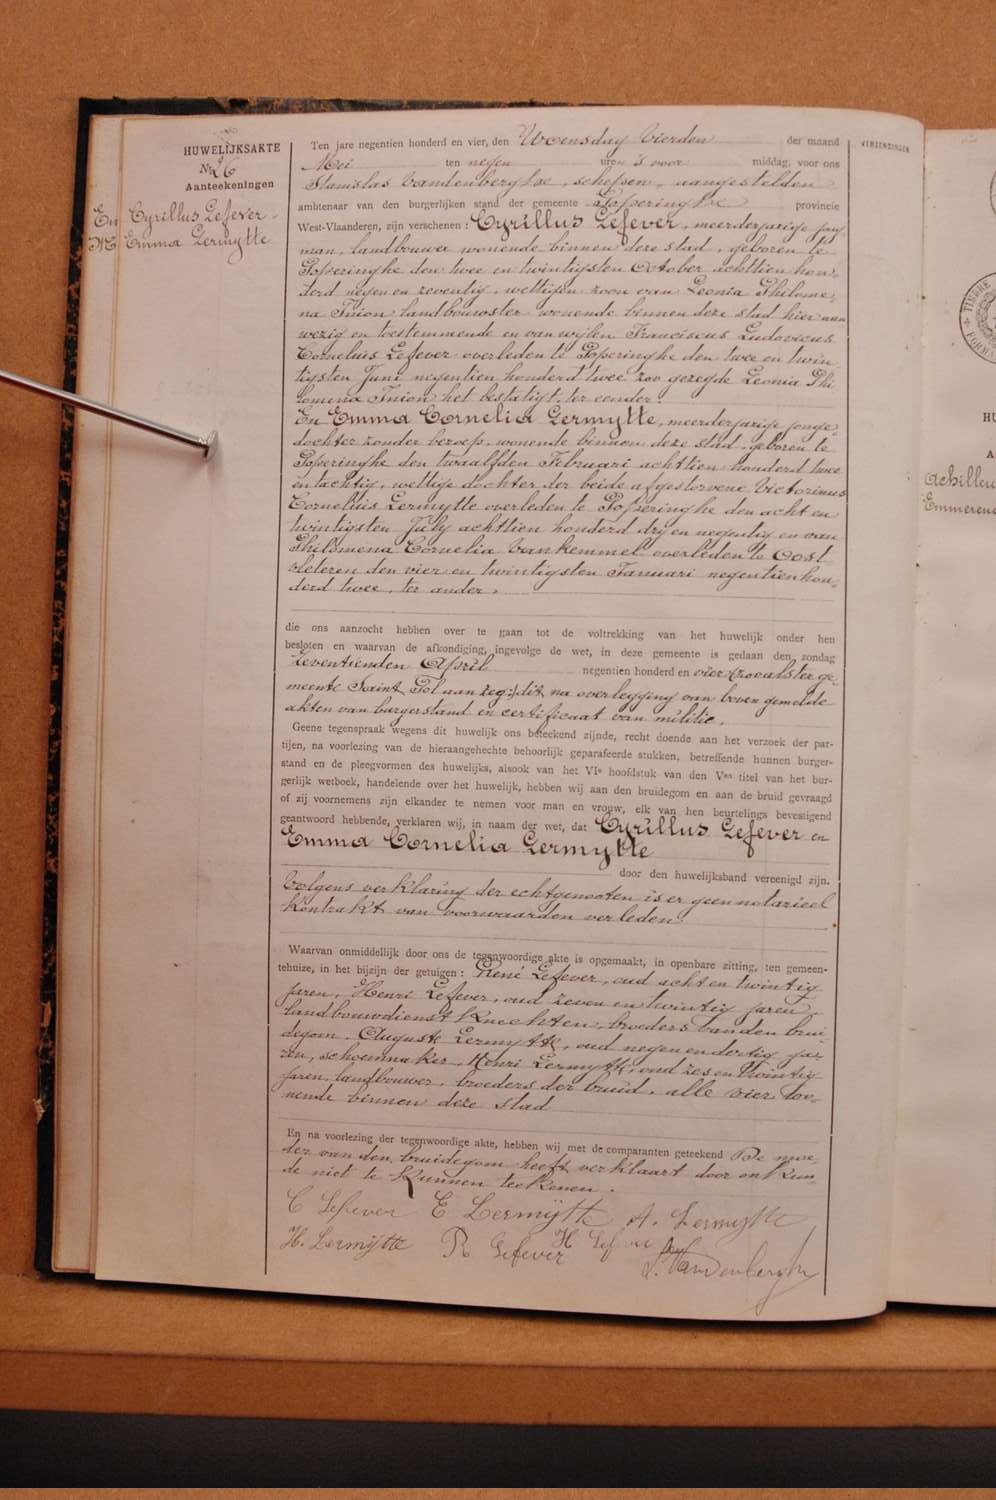 HUWELIJKSAKTE
Nr 26
Aanteekeningen
En Cyrillus Lefever
Emma Lermytte
Ten jare negentien honderd en vier, den Woensdag Vierden der maand
Mei ten negen ure 's voor middag, voor ons
Stanislas Vandenberghe, schepen, aangestelden
ambtenaar van den burgerlijken stand der gemeente Poperinghe provincie
West-Vlaanderen, zijn verschenen : Cyrillus Lefever, meerderjarige jong
man, landbouwer wonende binnen deze stad, geboren te
Poperinghe den twee en twintigsten October achttien hon-
derd negen en zeventig, wettigen zoon van Leonia Philome-
na Inion landbouwster wonende binnen deze stad hier aan
wezig en toestemmende en van wijlen Franciscus Ludovicus
Cornelius Lefever overleden te Poperinghe den twee en twin-
tigsten Juni negentien honderd twee zoo gezegde Leonia Phi
lomena Inion het bestatigt, ter eender.
En Emma Cornelia Lermytte, meerderjarige jonge-
dochter zonder beroep, wonende binnen deze stad, geboren te
Poperinghe den twaalfden Februari achttien honderd twee
en tachtig, wettige dochter der beide afgestorvene Victorinus
Cornelius Lermytte overleden te Poperinghe den acht en
twintigsten July achttien honderd dry en negentig en van
Philomena Cornelia Vankemmel overleden te Oost
vleteren den vier en twintigsten Januari negentien hon-
derd twee, ter ander,
die ons aanzocht hebben over te gaan tot de voltrekking van het huwelijk onder hen
besloten en waarvan de afkondiging, ingevolge de wet, in deze gemeente is gedaan den zondag
Zeventienden April negentien honderd en vier (zooals ter ge-
meente Saint Pol aanzeg:) dit na overlegging van boven gemelde
akten van burgerstand en certificaat van militie.
Geene tegenspraak wegens dit huwelijk ons beteekend zijnde, recht doende aan het verzoek der par-
tijen, na voorlezing van de hieraangehechte behoorlijk geparafeerde stukken, betreffende hunnen burger-
stand en de pleegvormen des huwelijks, alsook van het VIe hoofdstuk van den Ven titel van het bur-
gerlijk wetboek, handelende over het huwelijk, hebben wij aan den bruidegom en aan de bruid gevraagd
of zij voornemens zijn elkander te nemen voor man en vrouw, elk van hen beurtelings bevestigend
geantwoord hebbende, verklaren wij, in naam der wet, dat Cyrillus Lefever en
Emma Cornelia Lermytte
door den huwelijksband vereenigd zijn.
Volgens verklaring der echtgenooten is er geen notarieel
Kontrakt van voorwaarden verleden
Waarvan onmiddellijk door ons de tegenwoordige akte is opgemaakt, in openbare zitting, ten gemeen-
tehuize, in het bijzijn der getuigen : René Lefever, oud acht en twintig
jaren, Henri Lefever, oud zeven en twintig jaren,
landbouwdienst Knechten, broeders van den brui-
degom, Auguste Lermytte, oud negen en dertig ja-
ren, schoenmaker, Henri Lermytte, oud zes en twintig
jaren, landbouwer, broeders der bruid, alle vier wo-
nende binnen deze stad
En na voorlezing der tegenwoordige akte, hebben wij met de comparanten geteekend De moe-
der van den bruidegom heeft verklaart door onkun-
de niet te Kunnen teekenen.
C Lefever E Lermÿtte A. Lermytte
H. Lermÿtte R Lefever H Lefever
S. Vandenberghe
VERZENDINGEN
TIMBRE
Achilleu
Emmerenc